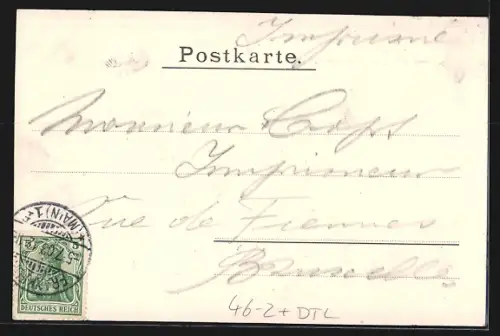 Imprimé
Postkarte.
Monsieur Cops
Imprimeur
Rue de Fiennes
Bruxelles
(MAIN) 1
5.7.03
DEUTSCHES REICH
46-2+DTL